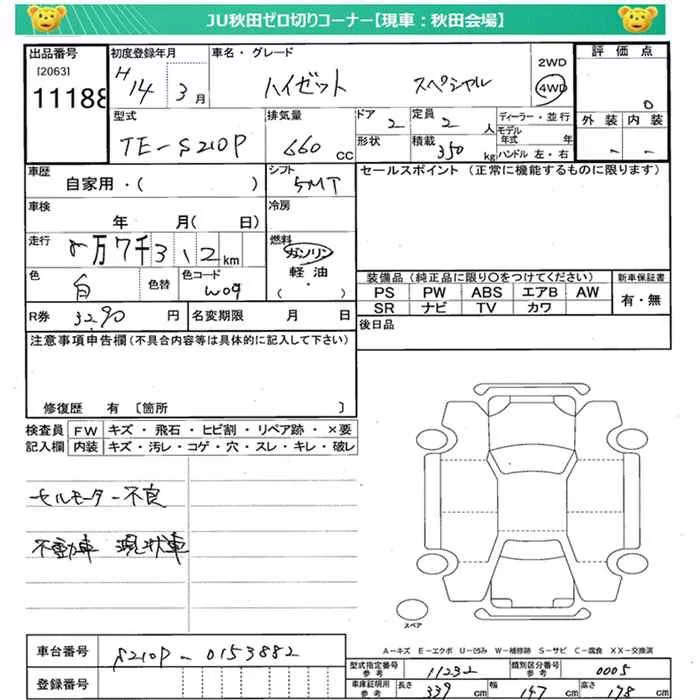 JU秋田ゼロ切りコーナー【現車：秋田会場】
出品番号 [2063] 11188
初度登録年月 H14 年 3月
車名・グレード ハイゼット スペシャル
2WD
4WD
評価点 0
外装 - 内装 -
型式 TE-S210P
排気量 660 cc
ドア 2
形状
定員 2 人
積載 350 kg
ディーラー・並行
モデル年式 年
ハンドル 左・右
車歴 自家用・( )
シフト 5MT
セールスポイント (正常に機能するものに限ります)
車検 年 月( 日)
冷房
走行 万7千312km
燃料 ガソリン
軽油
( ・ )
色 白 色替 色コード W09
装備品 (純正品に限り○をつけてください)
PS PW ABS エアB AW
SR ナビ TV カワ
新車保証書 有・無
R券 3290 円
名変期限 月 日
後日品
注意事項申告欄 (不具合内容等は具体的に記入して下さい)
修復歴 有 〔箇所 〕
検査員記入欄
FW キズ・飛石・ヒビ割・リペア跡・×要
内装 キズ・汚レ・コゲ・穴・スレ・キレ・破レ
セルモーター不良
不動車 現状車
スペア
A－キズ E－エクボ U－凹み W－補修跡 S－サビ C－腐食 XX－交換済
車台番号 S210P-0153882
登録番号
型式指定番号 参考 11232
類別区分番号 参考 0005
車庫証明用 参考 長さ 339 幅 147 高さ 178
cm